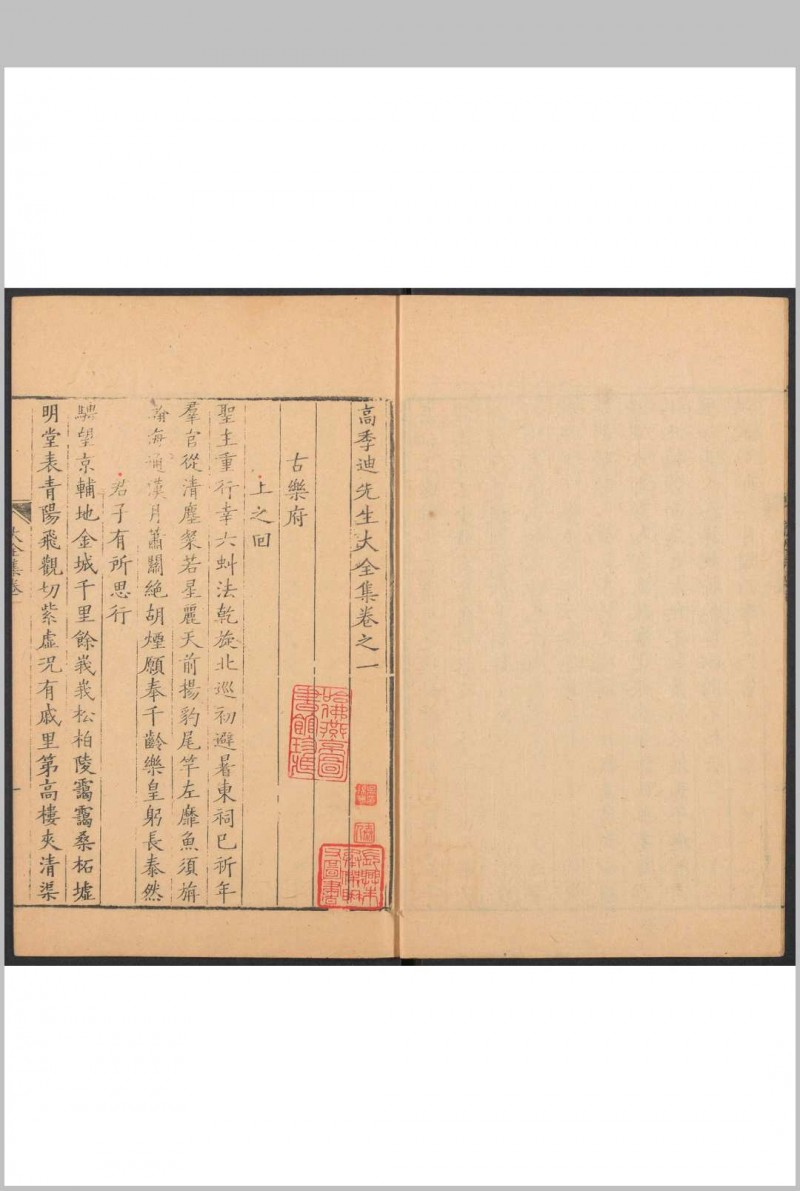 高季迪先生大全集卷之一
古樂府
上之回
聖主重行幸六虯法乾旋北巡初避暑東祠已祈年
羣官從清塵粲若星麗天前揚豹尾竿左靡魚須旃
瀚海通漢月蕭關絕胡煙願奉千齡樂皇躬長泰然
君子有所思行
騁望京輔地金城千里餘峩峩松柏陵靄靄桑柘墟
明堂表青陽飛觀切紫虛況有戚里第高樓夾清渠
大全集卷一
一
哈佛燕京圖書館珍藏